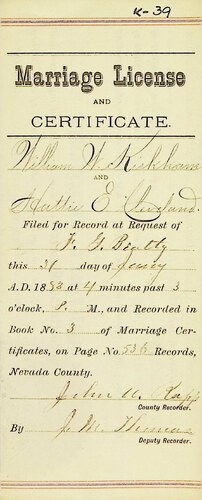 K-39
Marriage License
AND
CERTIFICATE.
William W. Kirkham
AND
Hattie E Cleveland.
Filed for Record at Request of
F. G. Beatty
this 31 day of
A.D. 1883 at 4 minutes past 3
o'clock, P. M., and Recorded in
Book No. 3 of Marriage Cer-
tificates, on Page No. 536 Records,
Nevada County.
John A. Rapp
County Recorder.
By J. M. Thomas
Deputy Recorder.